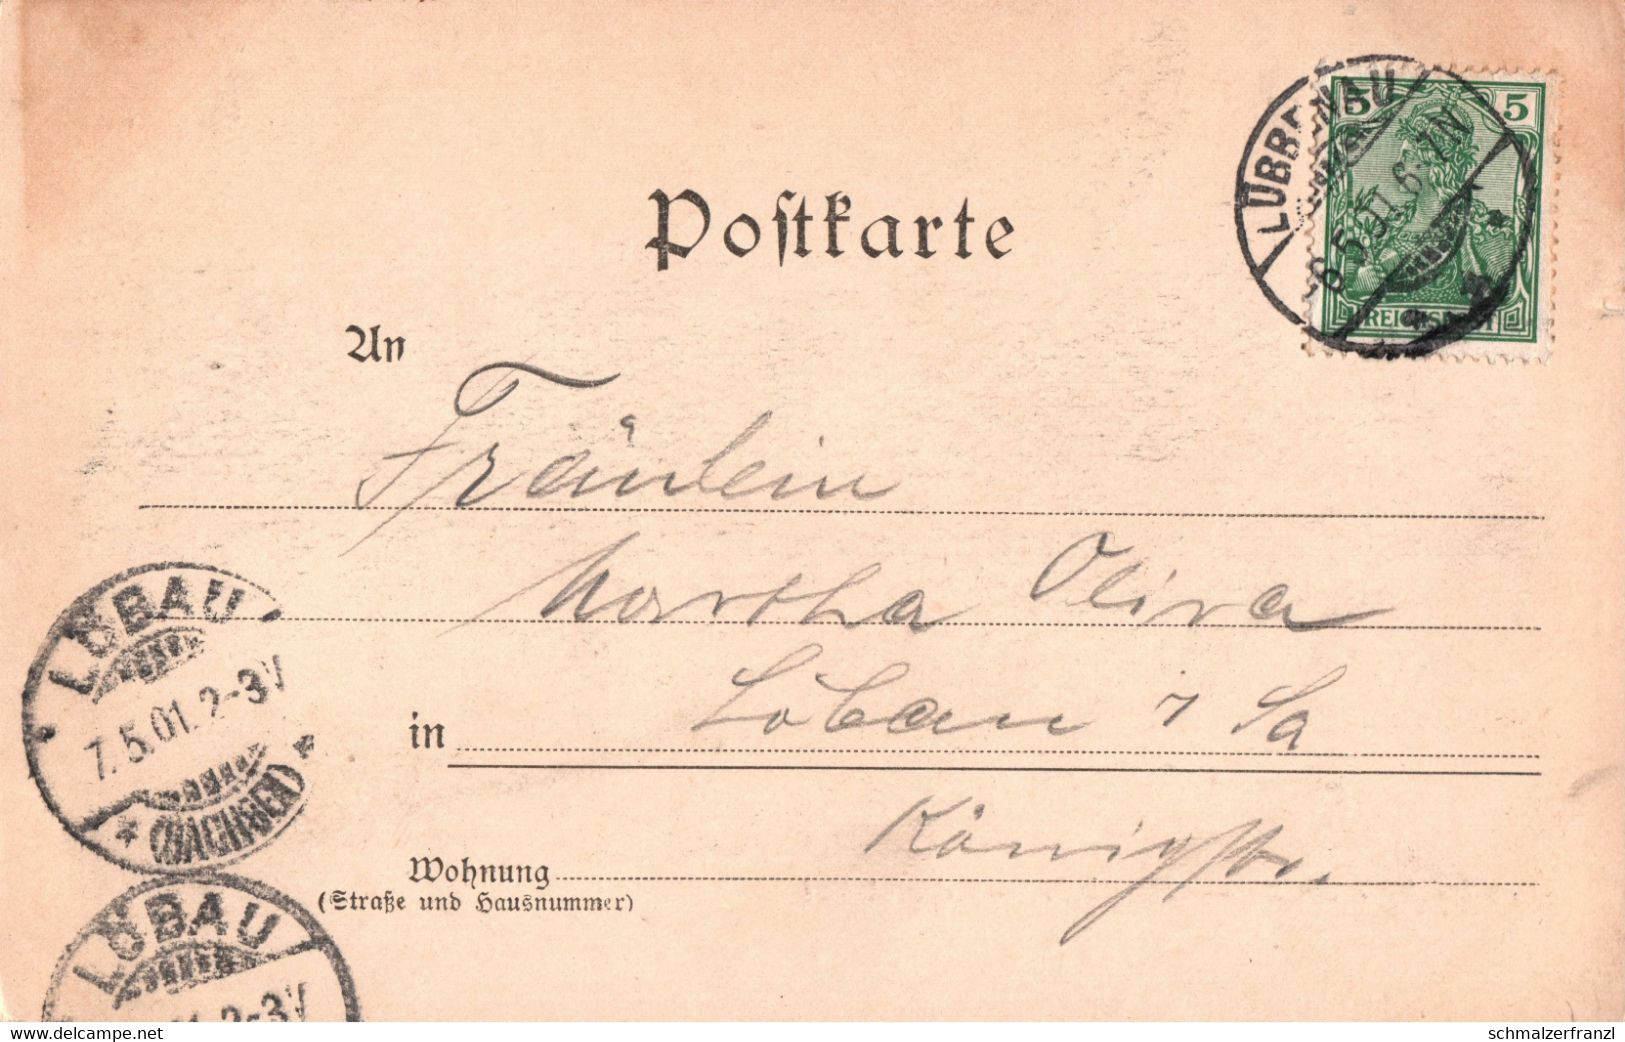 Postkarte
LÜBBENAU
5 5
REICHSPOST
An
Fräulein
Martha Oliva
in Löbau i Sa
Königstr.
Wohnung
(Straße und Hausnummer)
LÖBAU
7.5.01.2-3V
(SACHSEN)
LÖBAU
01.2-3V
www.delcampe.net
schmalzerfranzl